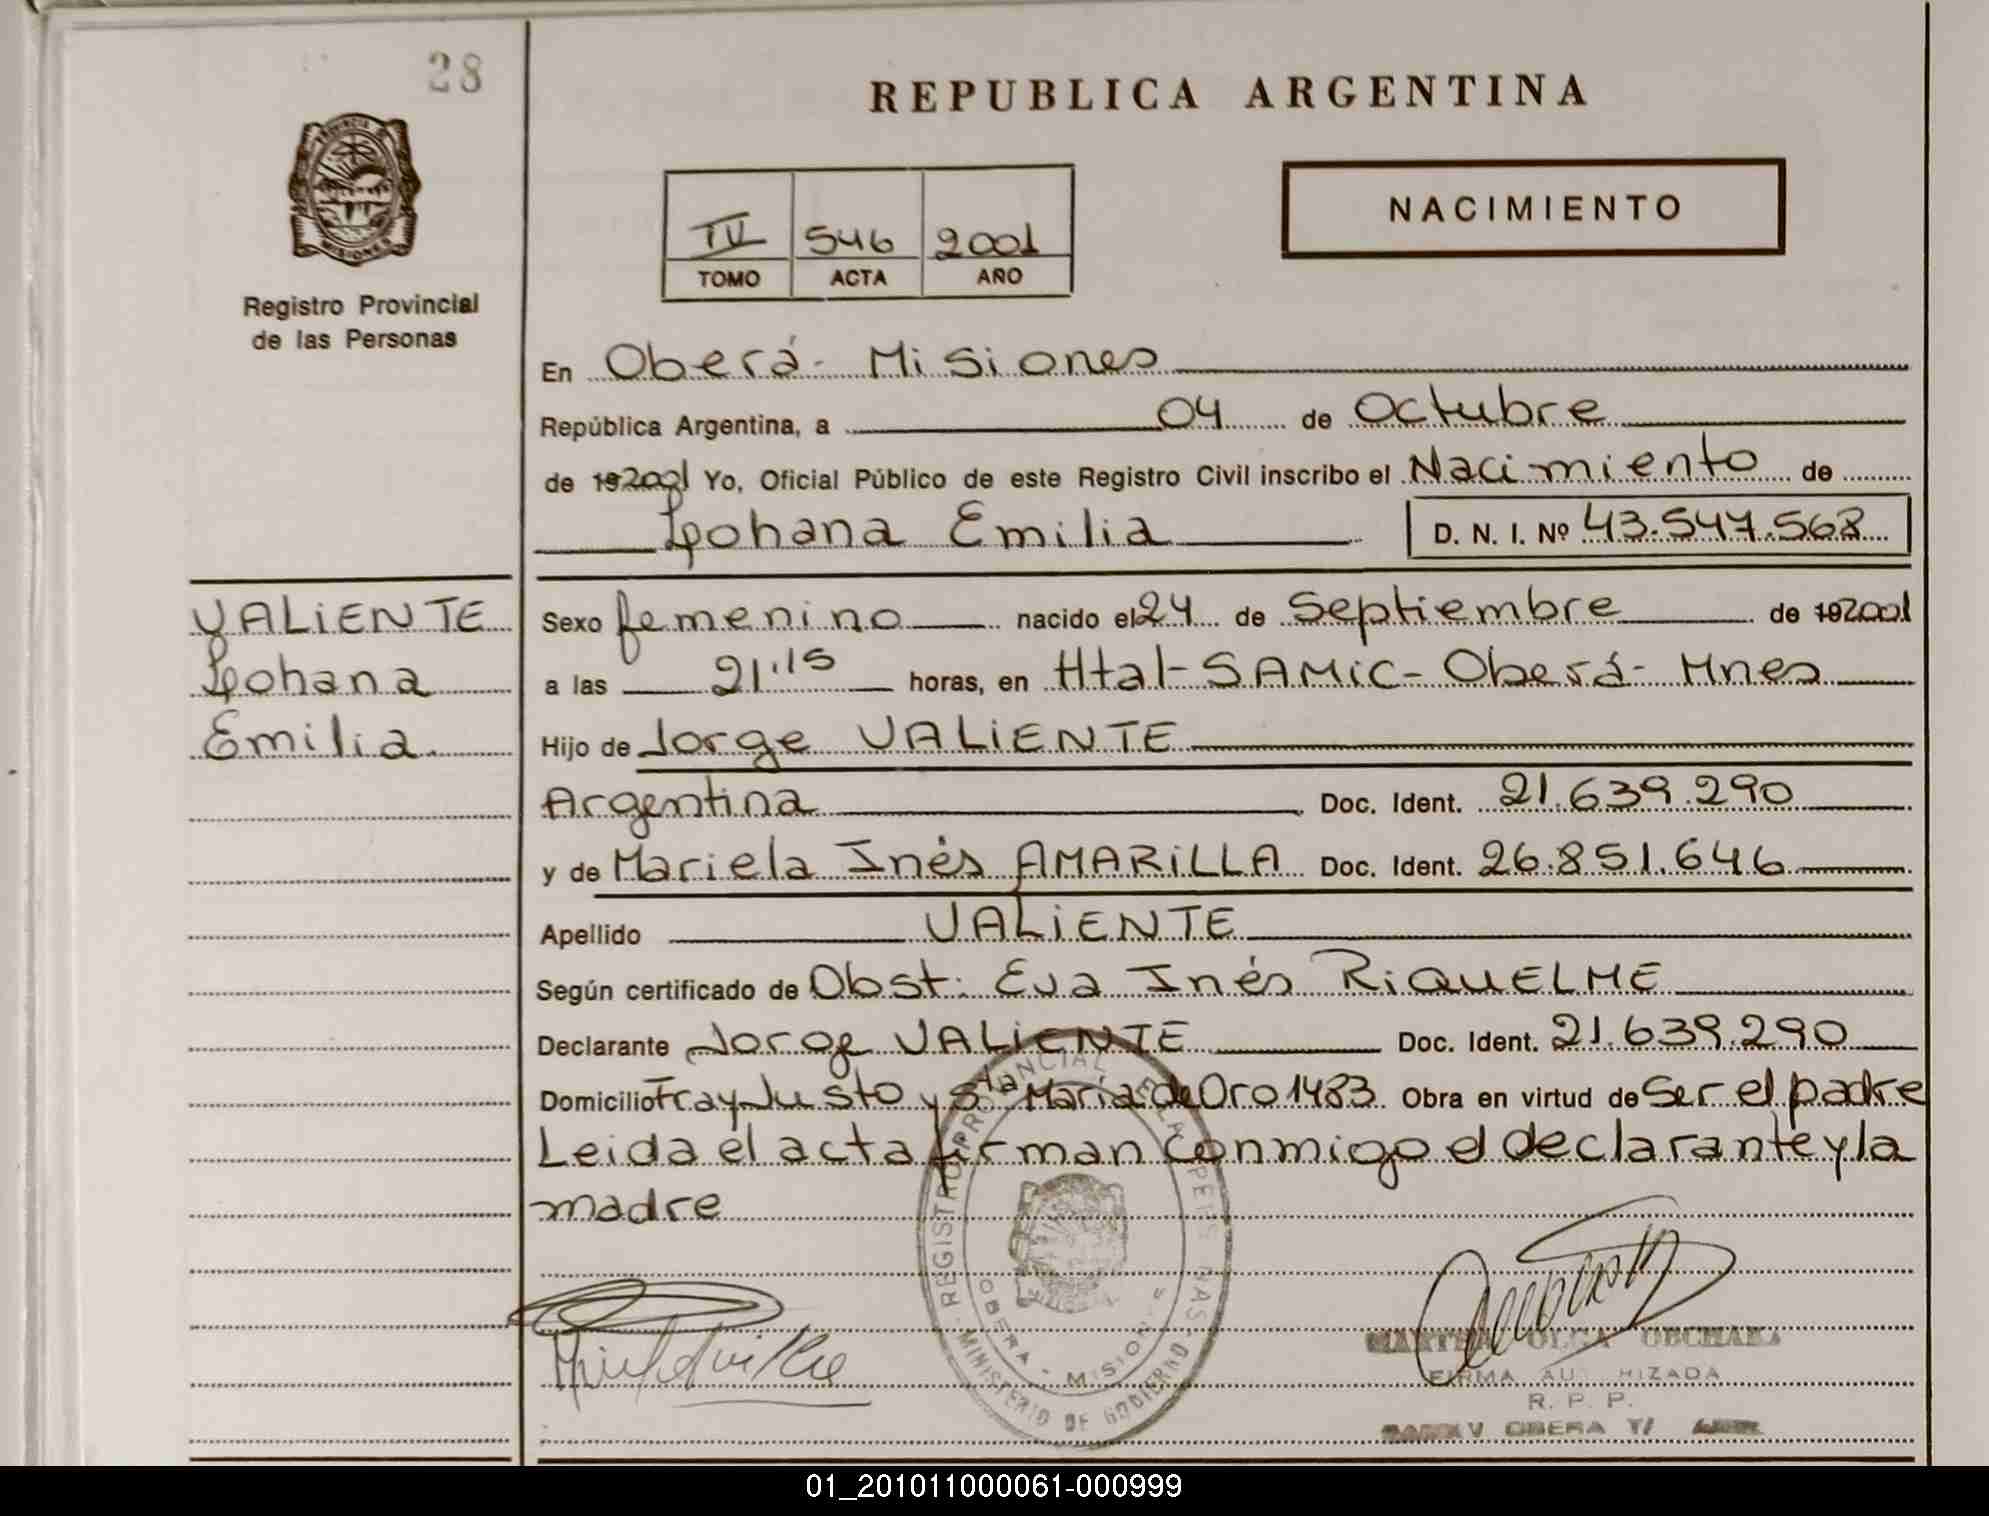 28
REPUBLICA ARGENTINA
PROVINCIA DE
MISIONES
Registro Provincial
de las Personas
NACIMIENTO
IV 546 2001
TOMO ACTA AÑO
En Oberá - Misiones
República Argentina, a 04 de Octubre
de 192001 Yo, Oficial Público de este Registro Civil inscribo el Nacimiento de
Lohana Emilia D. N. I. Nº 43.547.568
VALIENTE
Lohana
Emilia.
Sexo femenino nacido el 24 de Septiembre de 192001
a las 21:15 horas, en Htal-SAMIC-Oberá-Mnes
Hijo de Jorge VALIENTE
Argentina Doc. Ident. 21.639.290
y de Mariela Inés AMARILLA Doc. Ident. 26.851.646
Apellido VALIENTE
Según certificado de Obst: Eva Inés RIQUELME
Declarante Jorge VALIENTE Doc. Ident. 21.639.290
Domicilio Fray Justo y Sta María de Oro 1483 Obra en virtud de Ser el padre
Leida el acta firman conmigo el declarante y la
madre
REGISTRO PROVINCIAL DE LAS PERSONAS
OBERA - MISIONES
MINISTERIO DE GOBIERNO
OLGA
FIRMA AUTORIZADA
R. P. P.
OBERA
01_201011000061-000999